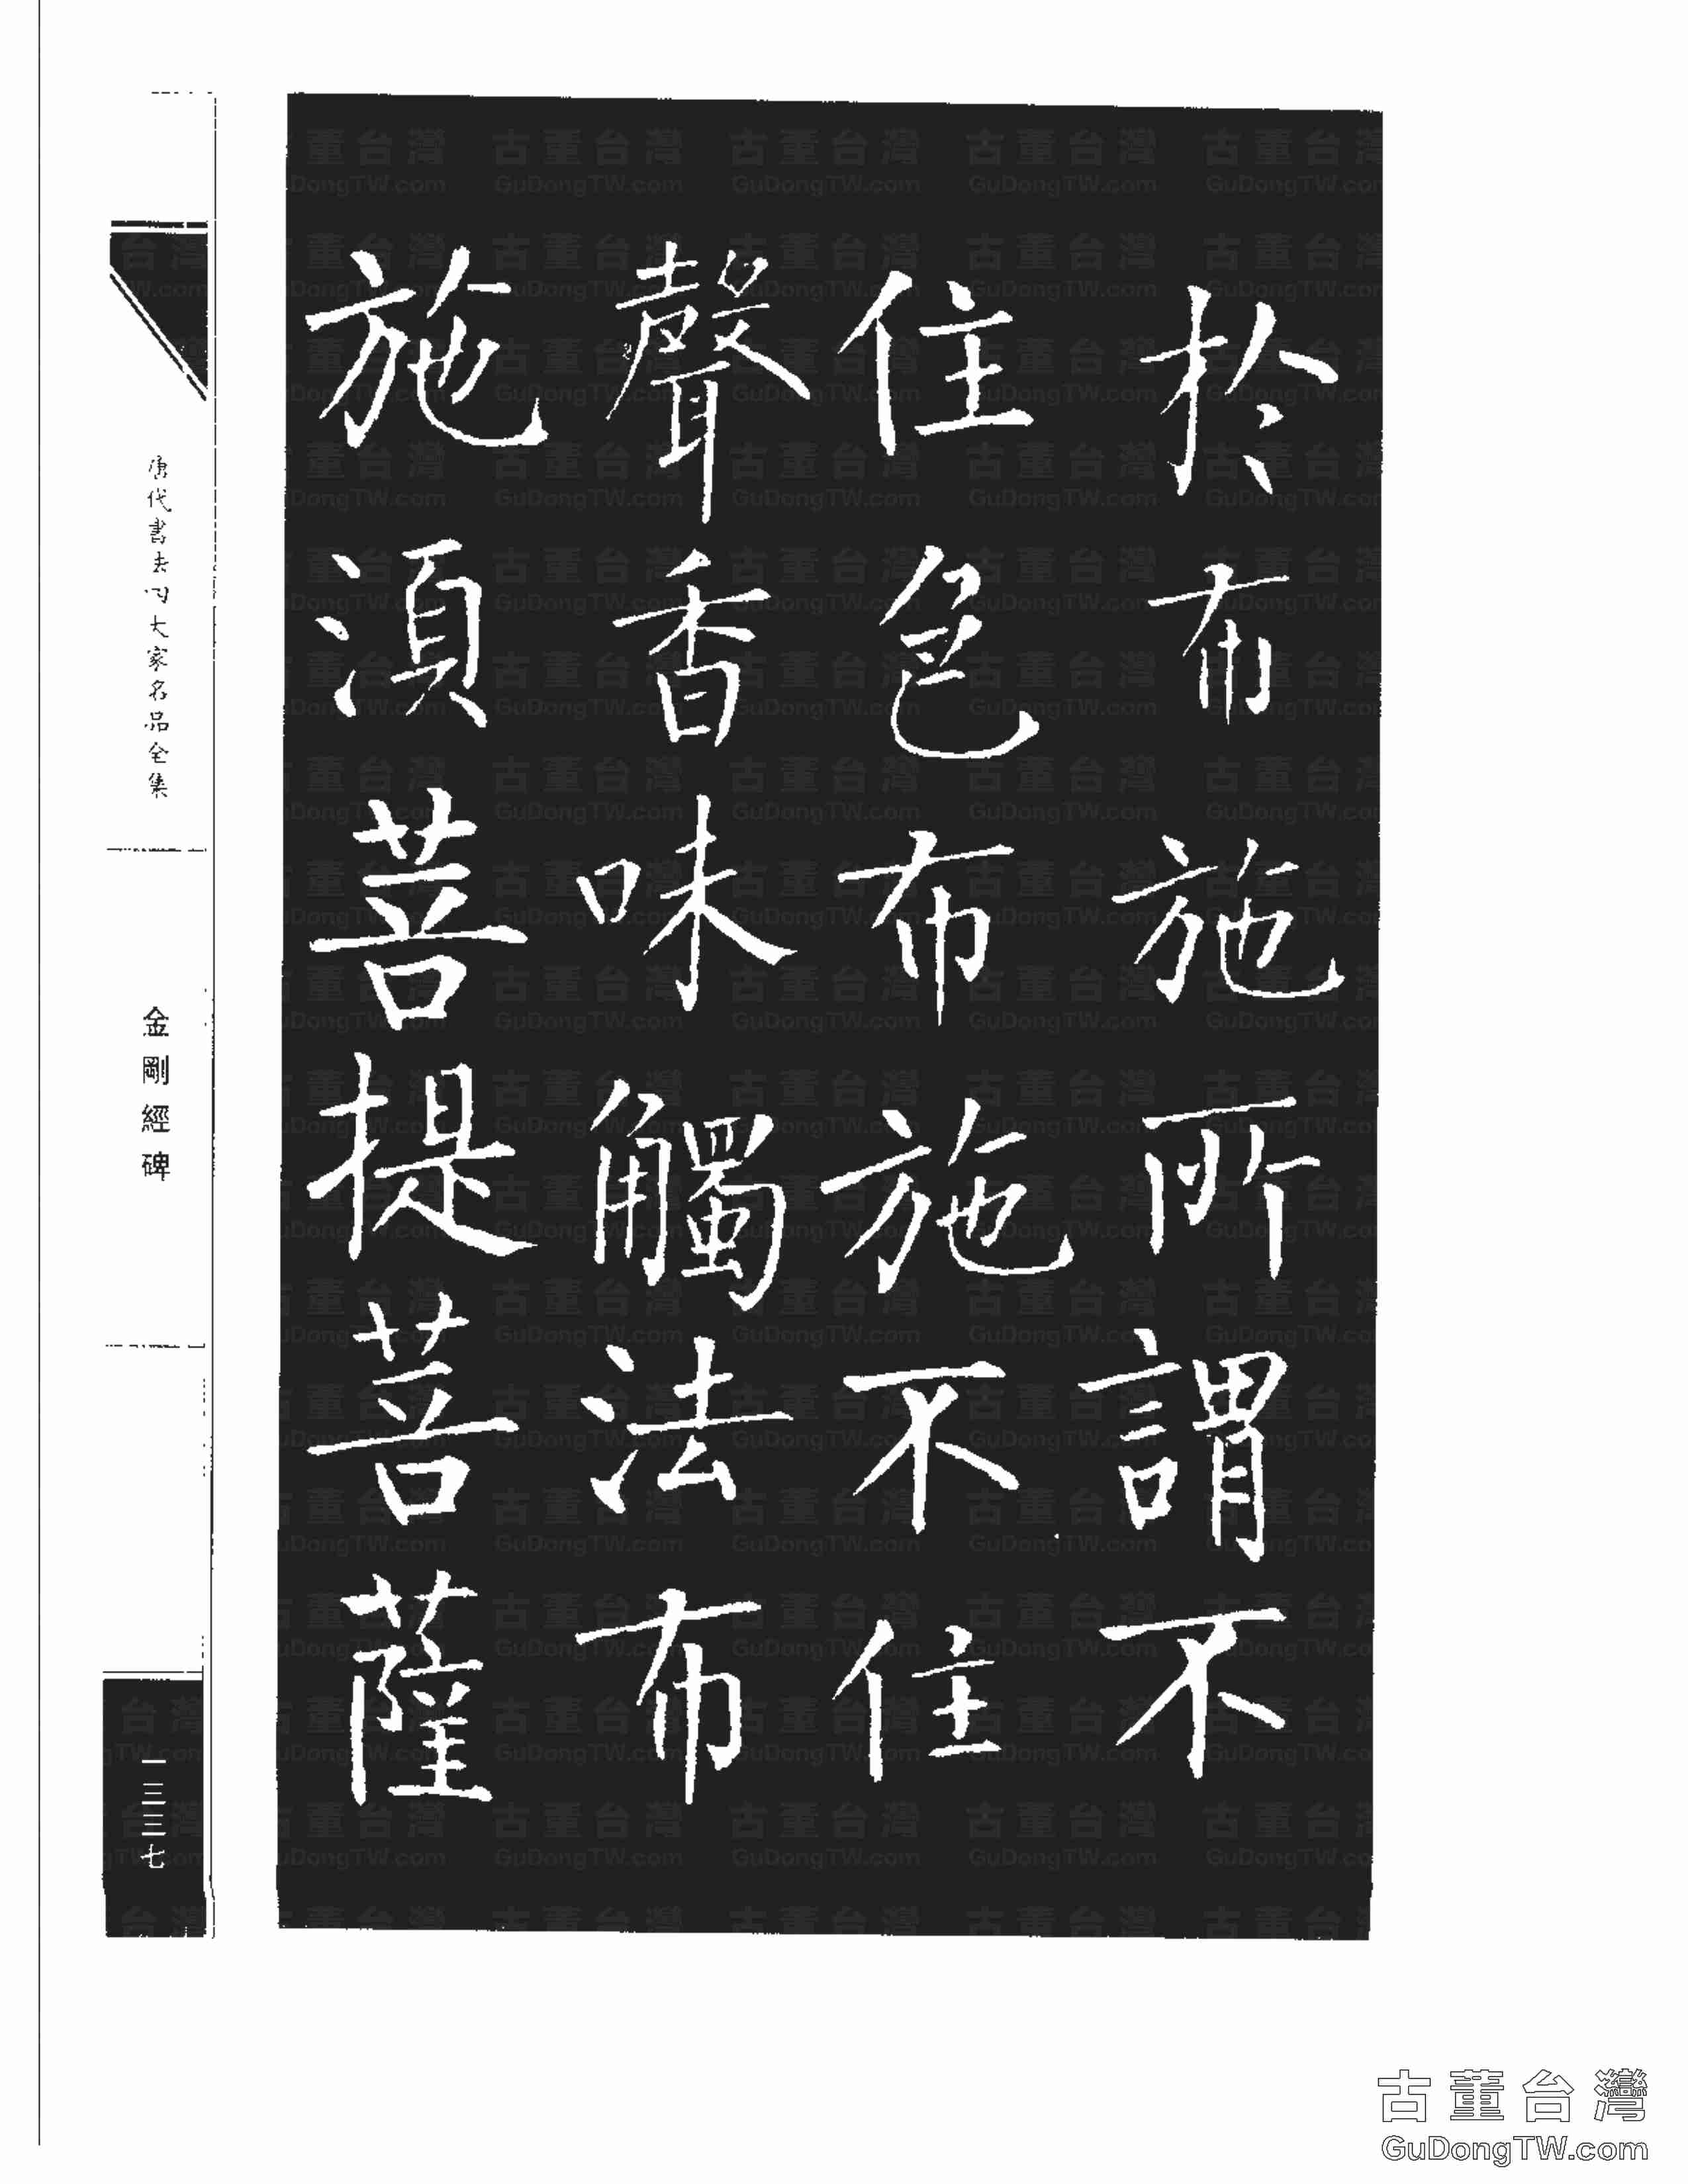 於布施所謂不
住色布施不住
聲香味觸法布
施須菩提菩薩
唐代書法四大家名品全集
金剛經碑
一三三七
古董台灣
GuDongTW.com